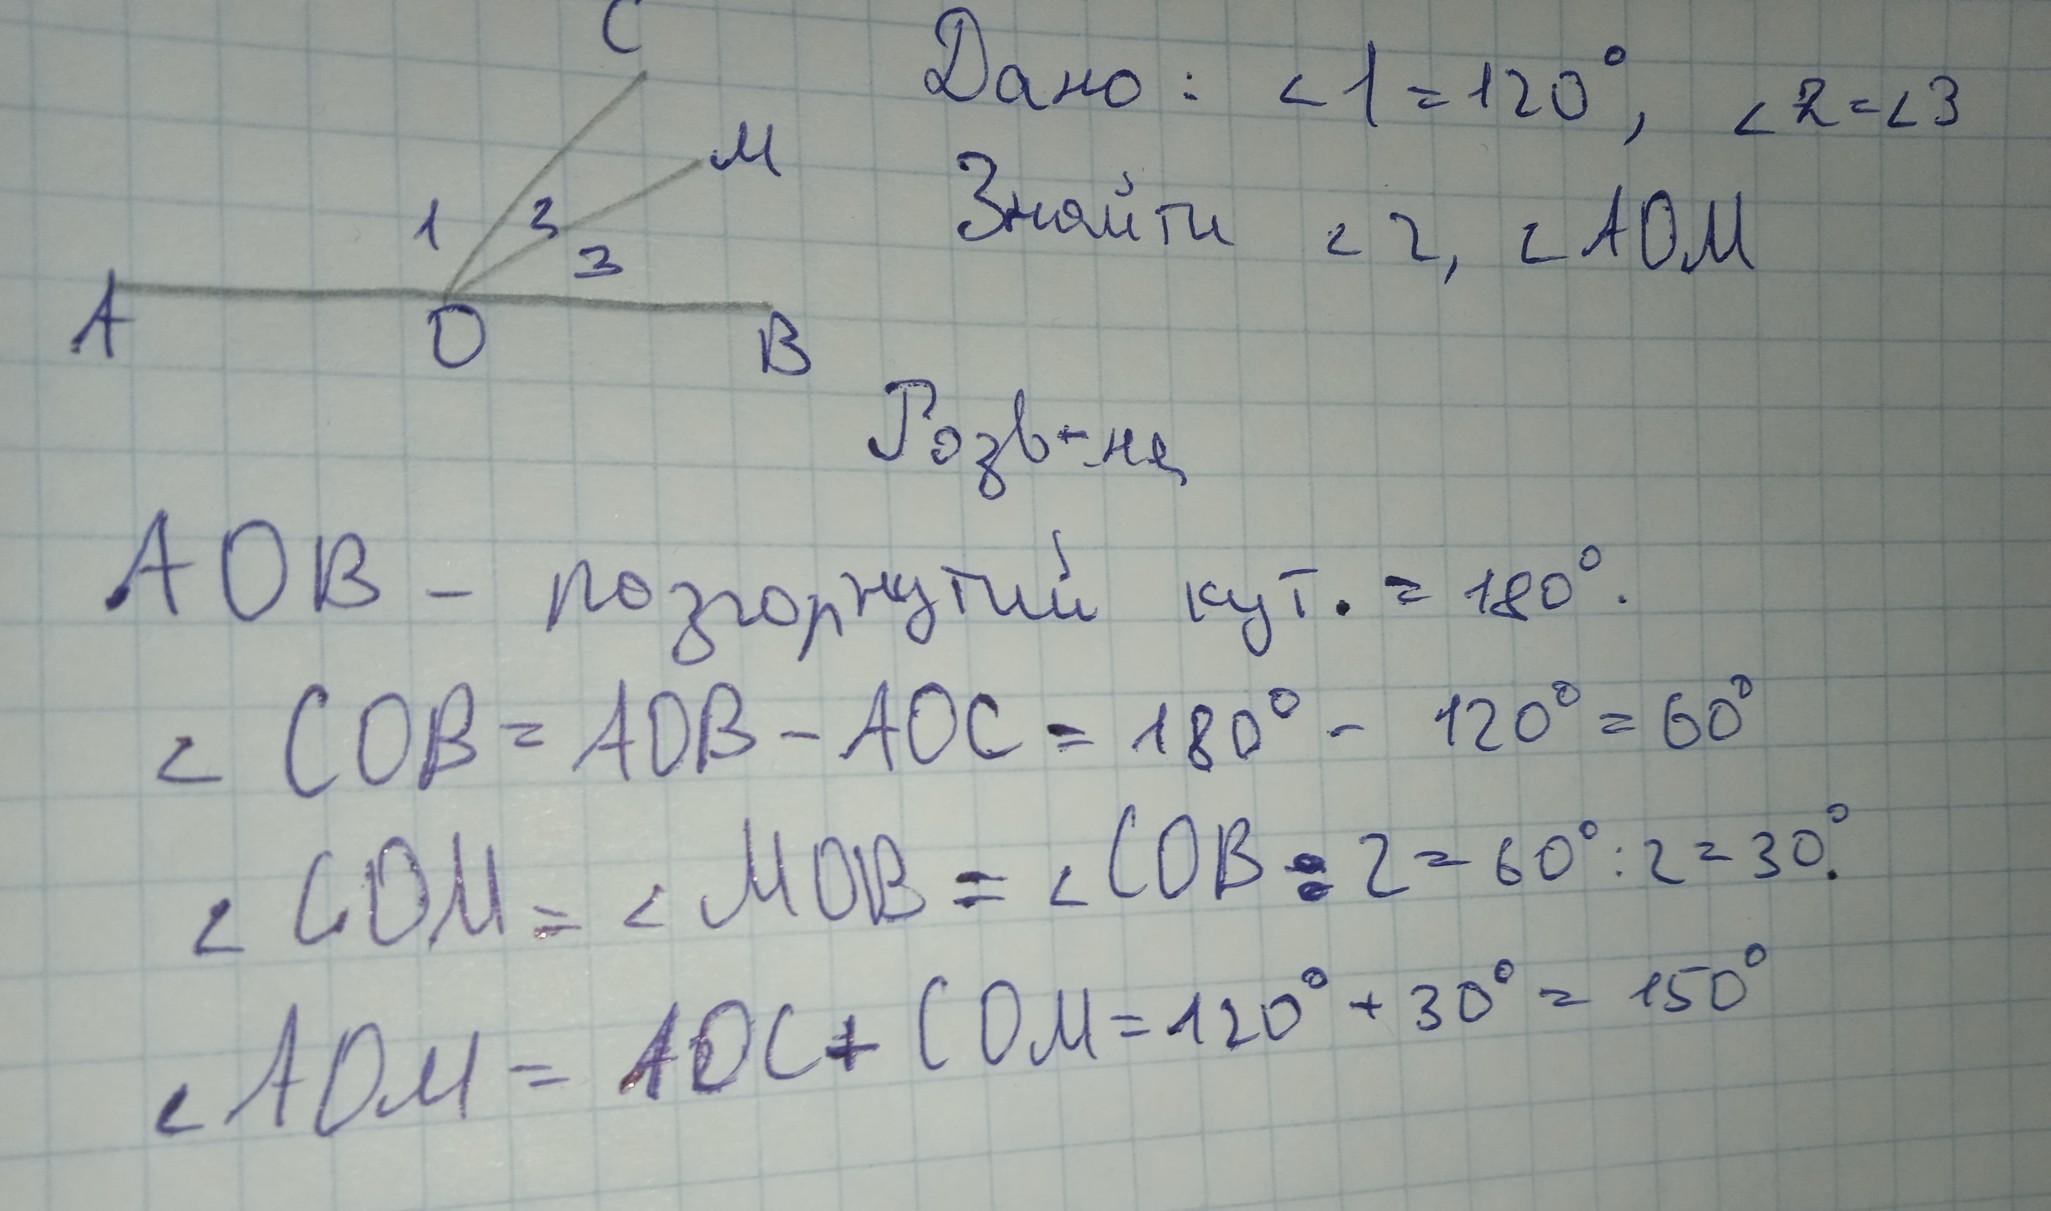 C
Дано: ∠1=120°, ∠2=∠3
M
Знайти ∠2, ∠AOM
1 3
3
A O B
Розв-ня
AOB - розгорнутий кут. = 180°.
∠COB = AOB - AOC = 180° - 120° = 60°
∠COM = ∠MOB = ∠COB : 2 = 60° : 2 = 30°.
∠AOM = AOC + COM = 120° + 30° = 150°